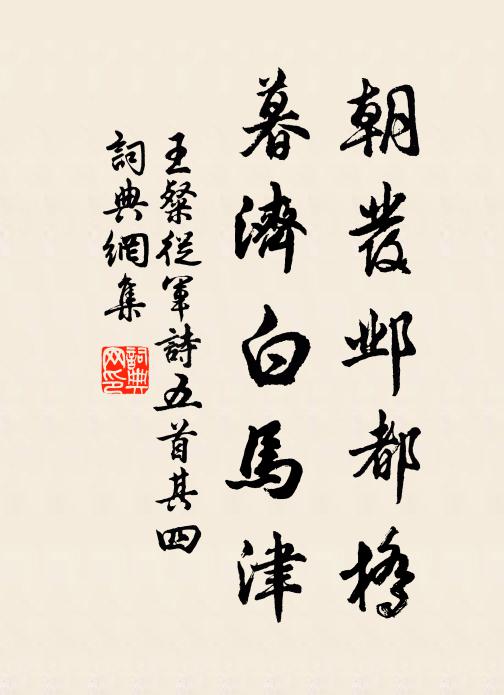 朝發邺都橋
暮濟白馬津
王粲從軍詩五首其四
詞典網集
詞典网印